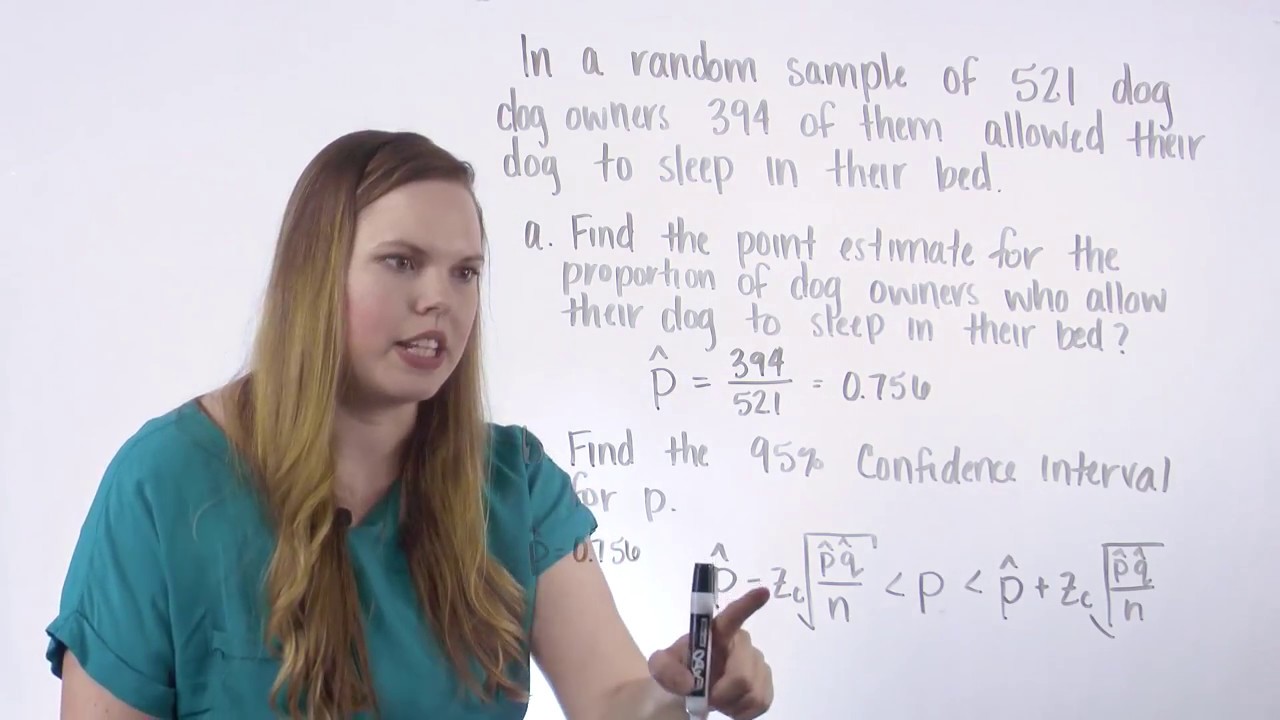 In a random sample of 521 dog
dog owners 394 of them allowed their
dog to sleep in their bed.
a. Find the point estimate for the
proportion of dog owners who allow
their dog to sleep in their bed?
p̂ = 394/521 = 0.756
Find the 95% Confidence Interval
for p.
p̂ = 0.756
p̂ - zc√(p̂q̂/n) < p < p̂ + zc√(p̂q̂/n)